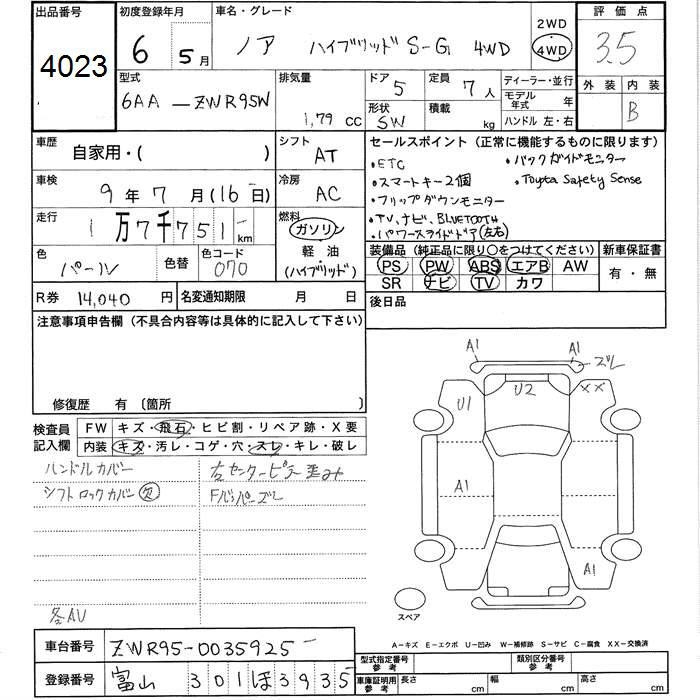 出品番号 初度登録年月 車名・グレード 2WD 評価点
4023 6 5月 ノア ハイブリッド S-G 4WD 4WD 3.5
型式 排気量 ドア 5 定員 7人 ディーラー・並行 外装 内装
6AA-ZWR95W 1,79 cc 形状 SW 積載 kg モデル年式 年 B
ハンドル 左・右
車歴 自家用・( ) シフト AT セールスポイント (正常に機能するものに限ります)
・ETC ・バックガイドモニター
車検 9年7月(16日) 冷房 AC ・スマートキー2個 ・Toyota Safety Sense
・フリップダウンモニター
走行 1万7千751km 燃料 ガソリン ・TV、ナビ、BLUETOOTH
軽油 ・パワースライドドア(左右)
色 パール 色替 色コード 070 (ハイブリッド) 装備品 (純正品に限り○をつけてください) 新車保証書
PS PW ABS エアB AW 有・無
R券 14,040円 名変通知期限 月 日 SR ナビ TV カワ
注意事項申告欄 (不具合内容等は具体的に記入して下さい) 後日品
修復歴 有 〔箇所 〕
A1 A1 ズレ
U1 U2 XX
A1
A1
スペア
検査員記入欄 FW キズ・飛石・ヒビ割・リペア跡・X要
内装 キズ・汚レ・コゲ・穴・スレ・キレ・破レ
ハンドルカバー 右センターピラー歪み
シフトロックカバー欠 Fバンパーズレ
各AU
A-キズ E-エクボ U-凹み W-補修跡 S-サビ C-腐食 XX-交換済
車台番号 ZWR95-0035925 型式指定番号 参考 類別区分番号 参考
登録番号 富山 301 ほ 3935 車庫証明用 参考 長さ cm 幅 cm 高さ cm